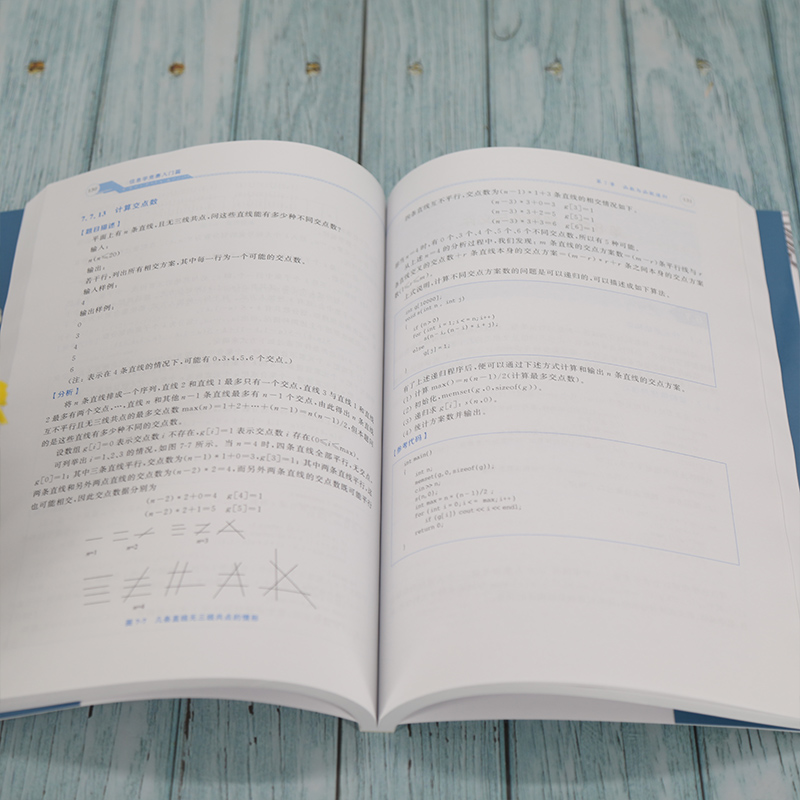 信息学竞赛入门篇
7.7.13 计算交点数
【题目描述】
平面上有n条直线,且无三线共点,问这些直线能有多少种不同交点数?
输入:
n(n≤20)
输出:
若干行,列出所有相交方案,其中每一行为一个可能的交点数.
输入样例:
4
输出样例:
0
3
4
5
6
(注: 表示在4条直线的情况下,可能有0,3,4,5,6个交点.)
【分析】
将n条直线排成一个序列,直线2和直线1最多只有一个交点,直线3与直线1和直线
2最多有两个交点,…,直线n和其他n-1条直线最多有n-1个交点,由此得出n条直线
互不平行且无三线共点的最多交点数max(n)=1+2+…+(n-1)=n(n-1)/2,但本题问
的是这些直线有多少种不同的交点数.
设数组g[i]=0表示交点数i不存在,g[i]=1表示交点数i存在(0≤i≤max).
可列举出i=1,2,3的情况,如图7-7所示。当n=4时,四条直线全部平行,无交点,
g[0]=1; 其中三条直线平行,交点数为(n-1)*1+0=3,g[3]=1; 其中两条直线平行,这
两条直线和另外两点直线的交点数为(n-2)*2=4,而另外两条直线的交点数既可能平行
也可能相交,因此交点数据分别为
(n-2)*2+0=4 g[4]=1
(n-2)*2+1=5 g[5]=1
n=1
n=2
n=3
n=4
图7-7 几条直线无三线共点的情形
四条直线互不平行,交点数为(n-1)*1+3条直线的相交情况如下。
(n-3)*3+0=3 g[3]=1
(n-3)*3+2=5 g[5]=1
(n-3)*3+3=6 g[6]=1
即当n=4时,有0个,3个,4个,5个,6个不同交点数,所以有5种可能.
从上述n=4的分析过程中,我们发现,m条直线的交点方案数=(m-r)条平行线与r
条直线交叉的交点数+r条直线本身的交点方案=(m-r)*r+r条之间本身的交点方案
数(1≤r≤m).
上式说明,计算不同交点方案数的问题是可以递归的,可以描述成如下算法.
int g[10000];
void s(int n, int j)
{
if (n>0)
for (int i=1;i<=n;i++)
s(n-i,(n-i)*i+j);
else
g[j]=1;
}
有了上述递归程序后,便可以通过下述方式计算和输出n条直线的交点方案。
(1) 计算max()=n(n-1)/2(计算最多交点数).
(2) 初始化,memset(g,0,sizeof(g)).
(3) 递归求g[i],s(n,0).
(4) 统计方案数并输出.
【参考代码】
int main()
{
int n;
memset(g,0,sizeof(g));
cin>>n;
s(n,0);
int max=n*(n-1)/2;
for (int i=0;i<=max;i++)
if (g[i]) cout<<i<<endl;
return 0;
}